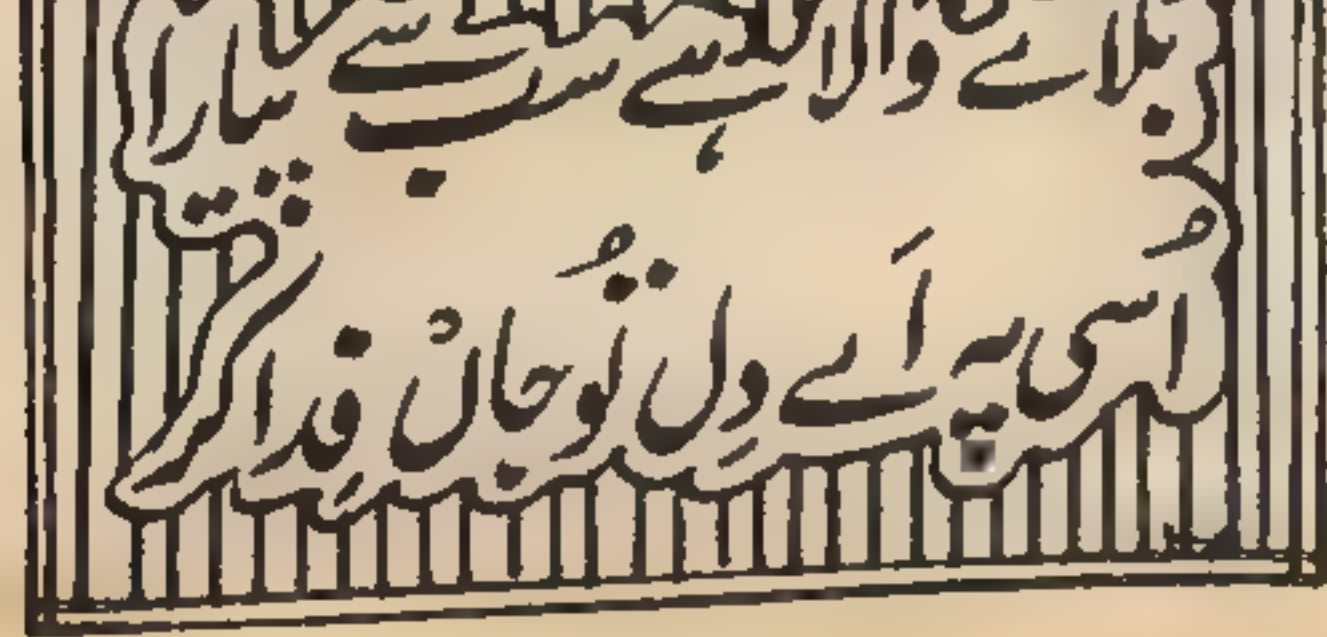 بلانے والا ہے سب سے پیارا
اُسی پہ اَے دِل تُو جاں فِدا کر